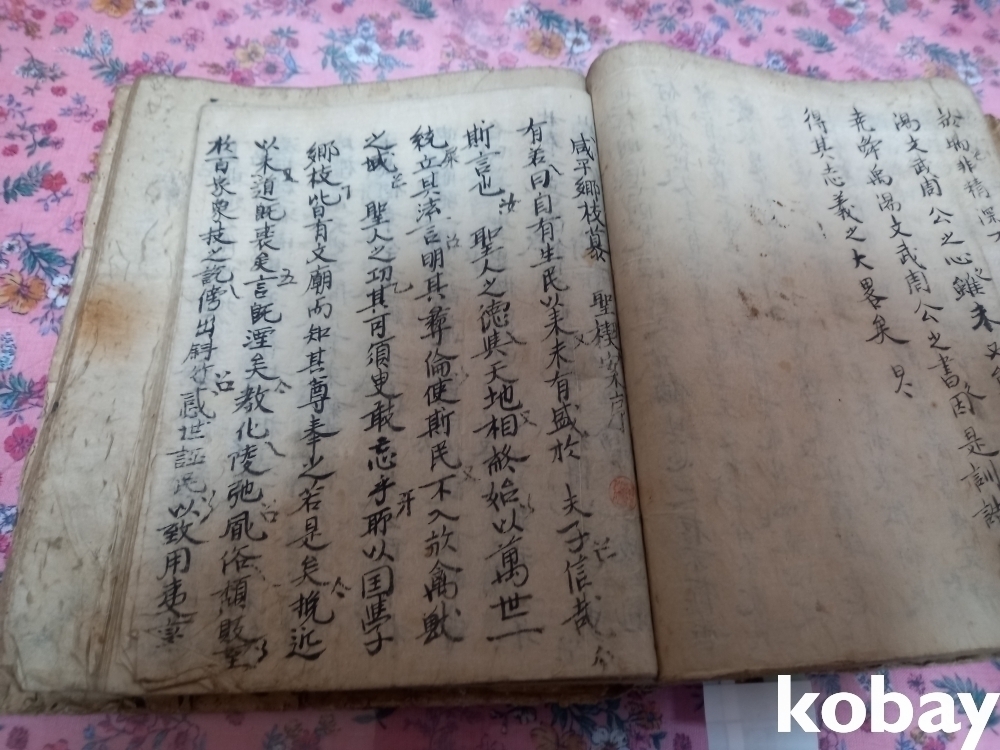 訟
湯文武周公之心雖未
堯舜禹湯文武周公之書因是訓
得其志義之大畧矣
咸平鄕校募聖樓案序
有若曰自有生民以來未有盛於夫子信哉
斯言也聖人之德與天地相終始以萬世一
統立其法言明其彝倫使斯民不入於禽獸
之域聖人之功其可須臾敢忘乎耶以国學
鄕校皆有文廟而知其尊奉之若是矣挽近
以來道旣衰矣言旣湮矣敎化陵弛風俗頹敗至
於百家衆技之說傍出惑世誣民以致用
kobay